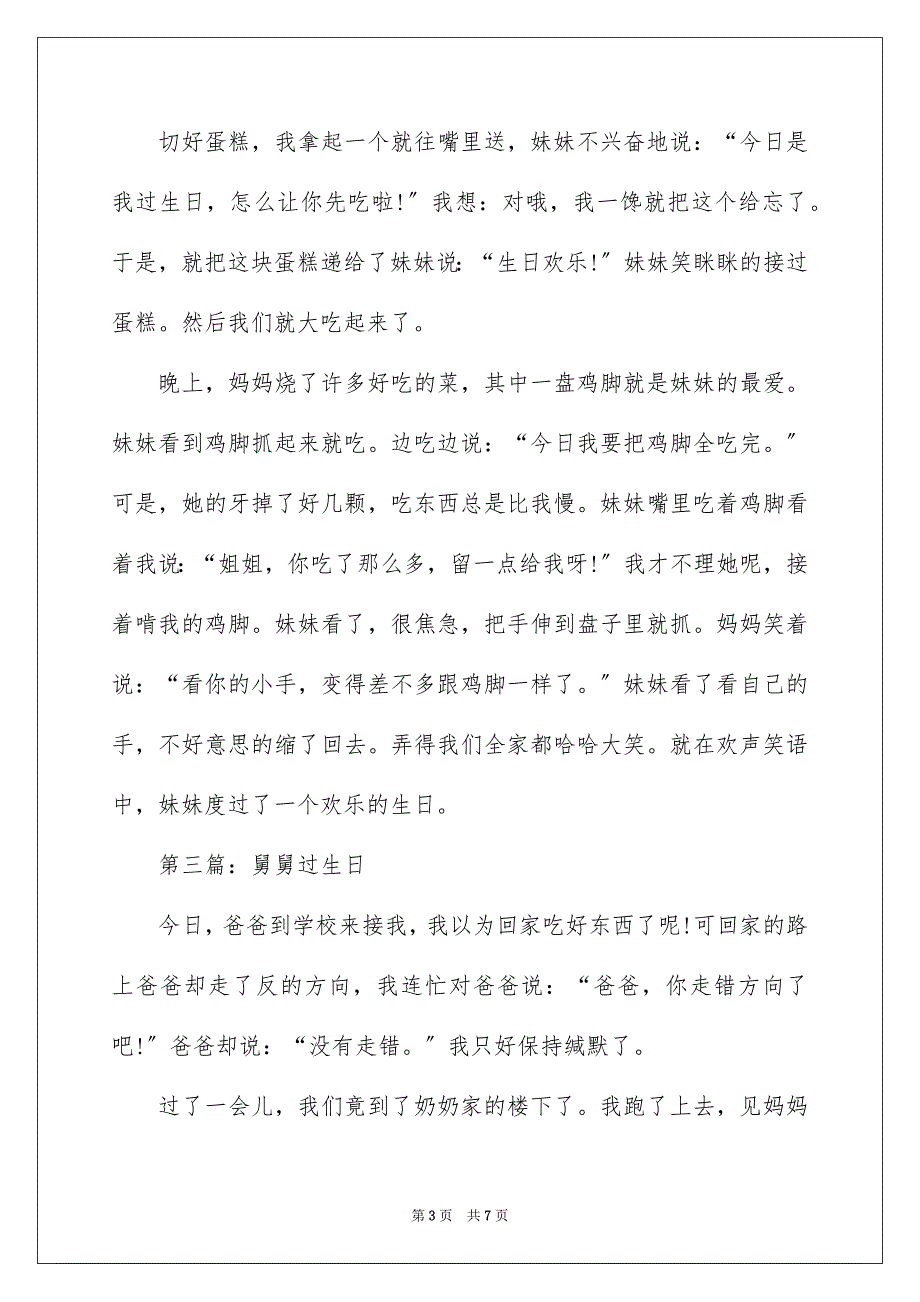 切好蛋糕，我拿起一个就往嘴里送，妹妹不兴奋地说：“今日是
我过生日，怎么让你先吃啦!〞我想：对哦，我一馋就把这个给忘了。
于是，就把这块蛋糕递给了妹妹说：“生日欢乐!〞妹妹笑眯眯的接过
蛋糕。然后我们就大吃起来了。
晚上，妈妈烧了许多好吃的菜，其中一盘鸡脚就是妹妹的最爱。
妹妹看到鸡脚抓起来就吃。边吃边说：“今日我要把鸡脚全吃完。〞
可是，她的牙掉了好几颗，吃东西总是比我慢。妹妹嘴里吃着鸡脚看
着我说：“姐姐，你吃了那么多，留一点给我呀!〞我才不理她呢，接
着啃我的鸡脚。妹妹看了，很焦急，把手伸到盘子里就抓。妈妈笑着
说：“看你的小手，变得差不多跟鸡脚一样了。〞妹妹看了看自己的
手，不好意思的缩了回去。弄得我们全家都哈哈大笑。就在欢声笑语
中，妹妹度过了一个欢乐的生日。
第三篇：舅舅过生日
今日，爸爸到学校来接我，我以为回家吃好东西了呢!可回家的路
上爸爸却走了反的方向，我连忙对爸爸说：“爸爸，你走错方向了
吧!〞爸爸却说：“没有走错。〞我只好保持缄默了。
过了一会儿，我们竟到了奶奶家的楼下了。我跑了上去，见妈妈
第 3 页 共 7 页